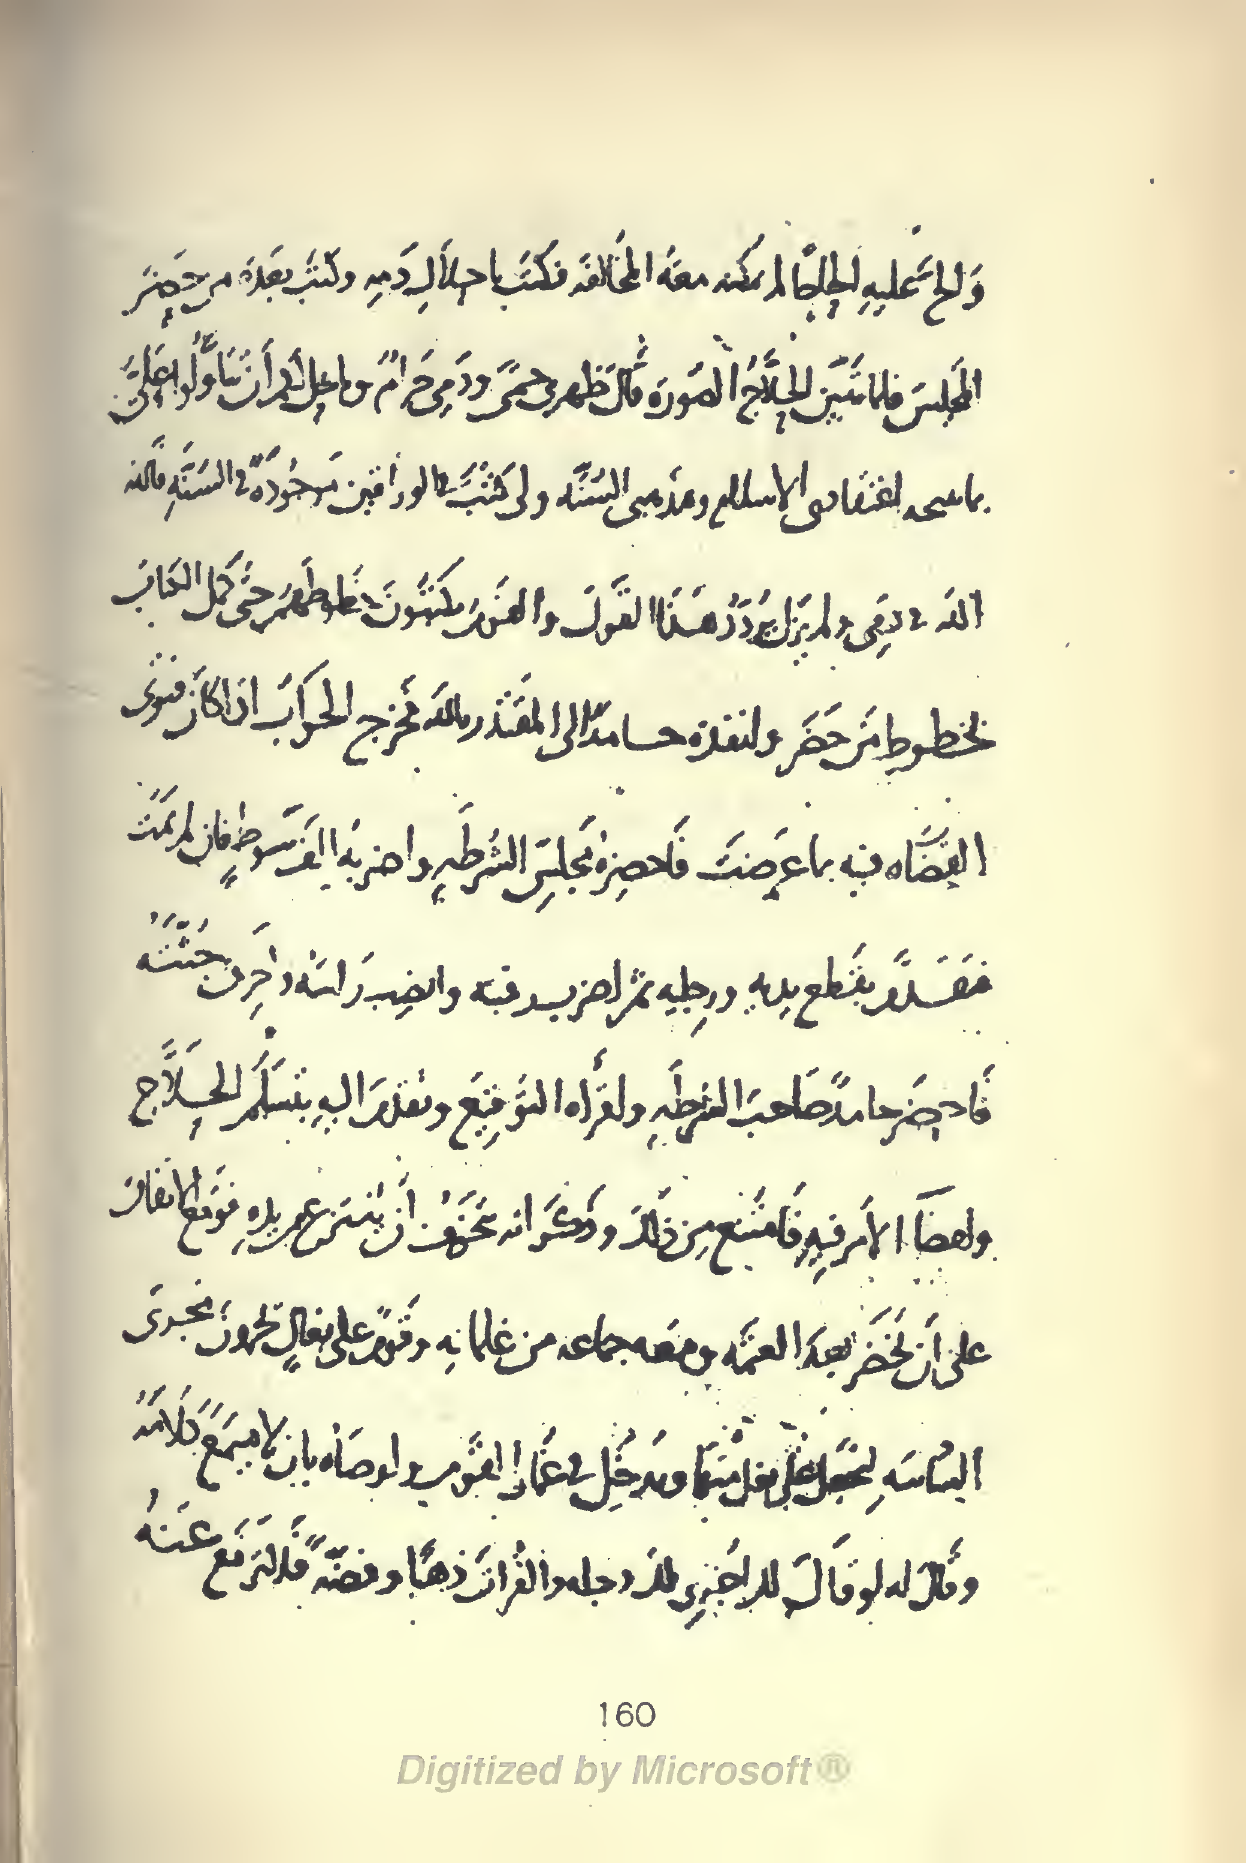 وَالحَّ عليهِ الحاحًا لم يمكنه معَهُ المخَالفَه فكتَبَ باحلاَلِ دَمِهِ وكتبَ بعَدَهُ من حَضِرَ
المجلِسَ فلما تبَيّن الحلاَّجُ الصُورَه قَالَ ظهرِى حمىً ودَمِى حَرامٌ وما يحِلُ لكم أن تتَأوَّلوا علىَّ
بما يبيحه اعْتقادِى الاسلام ومذهبى السُنَّه ولى كُتُبٌ فى الوراقين موجُودَهٌ فى السُنّهِ فالله
اللهَ فى دَمِى ولم يزَل يُرَدِّدُ هَذا القَولَ والقَوم يكتبُونَ خطوطهم حتى كمل الكتابُ
بخطوطِ مَن حَضَر وانفذهُ حامدٌ الى المقتدر بالله فخرج الجَوابُ اذا كانَ فتوَى
القضاه فيه بما عرَضتَ فَاحضِرهُ مجلسَ الشرطَهِ واضربهُ الفَ سَوطٍ فان لم يمُت
فتَقَدَّم بقَطع يديهِ ورجليه ثم اضرب رقبته وانصِب رَاسَهُ واحرِق جُثّتَهُ
فَاحضَر حامدٌ صَاحبَ الشرطَهِ واقرَأهُ التَوقيع وتقدَّم اليهِ بتسَلُّم الحَلاَّج
وامضَا الأمر فيهِ فَامتَنع مِن ذَلكَ وذَكَر انه يتخوَّفُ أن يُنتزع من يدهِ فوَقعَ الاتفاقُ
على أن يحضَر بَعدَ العتمَه ومعَه جماعه من غلمانِه وقومٌ على بغالٍ يجرونَ مجرَى
السَاسَهِ ليُجعَل على بغل منها ويُدخَل فى غمار القَوم واوصَاهُ بان لا يسمَع كَلاَمَهُ
وقَالَ له لو قالَ لك اجُرى لك دجله والفُراتَ ذهبًا وفضّهً فلا تَرفَع عَنهُ
160
Digitized by Microsoft®